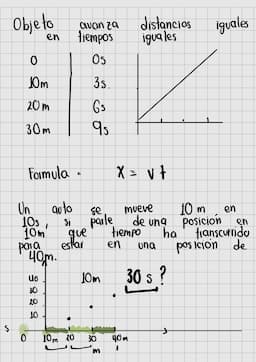 Objeto avanza distancias iguales
en tiempos iguales
0 0s
10m 3s
20m 6s
30m 9s
Formula. X = v t
Un auto se mueve 10 m en
10s, si parte de una posición en
10m, que tiempo ha transcurrido
para estar en una posición de
40m.
40
30
20
10
10m 30 s?
s 0 10m 20 30 40m
m